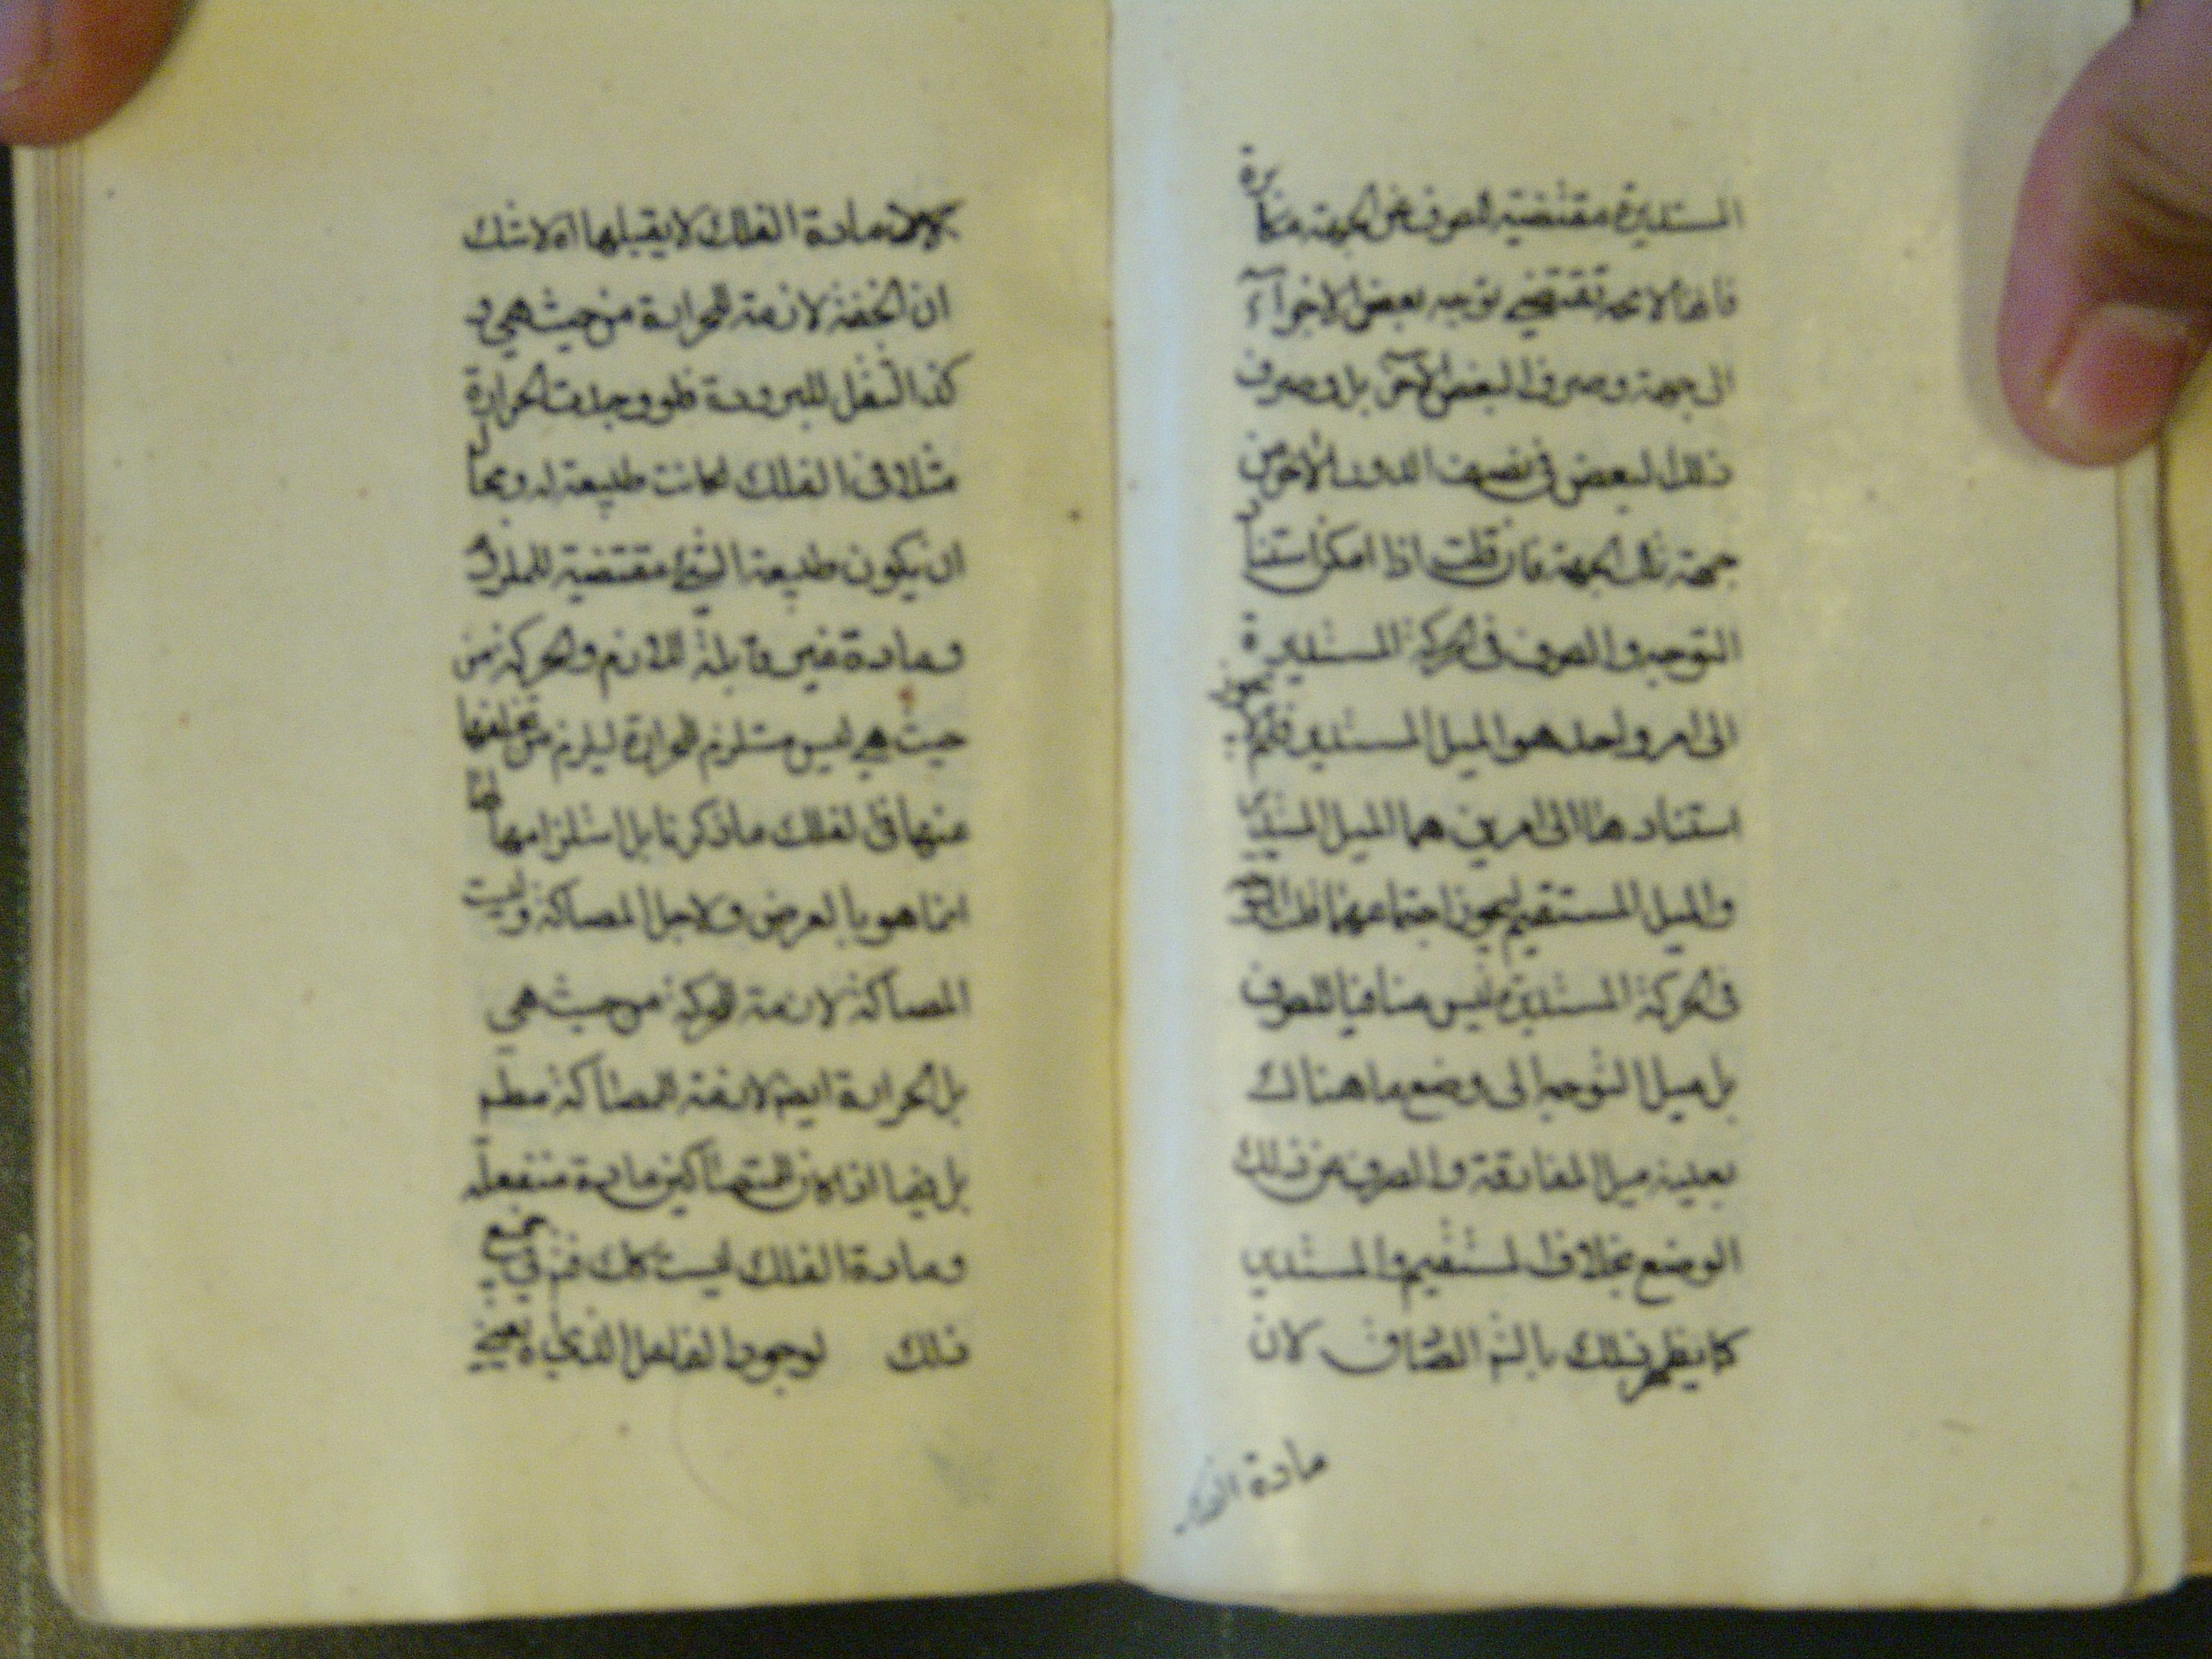 المستديرة مقتضية للصرف عن الجهة مغايرة
الى جهة وصرف البعض الآخر بل وصرف
ذلك البعض فى نصف الدور الآخر من
جهة تلك الجهة فان قلت اذا امكن استناد
التوجه والصرف فى الحركة المستديرة
الى امر واحد هو الميل المستدير فلم لا يجوز
استنادهما الى امرين هما الميل المستدير
والميل المستقيم ليجوز اجتماعهما قلت التوجه
فى الحركة المستديرة ليس منافيا للصرف
بل ميل التوجه الى وضع ما هناك
بعينه ميل المفارقة والصرف عن ذلك
الوضع بخلاف المستقيم والمستدير
كما يظهر ذلك بالنظر الصادق لان
مادة الفلك
مادة الفلك لا يقبلها اذ لا شك
ان الخفة لازمة للحرارة من حيث هي و
كذا الثقل للبرودة فلو وجدت الحرارة
مثلا فى الفلك لكانت طبيعة له ومحال
ان يكون طبيعة الشئ مقتضية للملزوم
ومادة غير قابلة للازم والحركة من
حيث هي ليس مستلزم للحرارة ليلزم من تخلفها
عنها فى الفلك ما ذكرنا بل استلزامها لها
انما هو بالعرض ولاجل المصاكة وليست
المصاكة لازمة للحركة من حيث هي
بل الحرارة ايضا لازمة للمصاكة مطلقا
بل فيما اذا كان للمتصاكين مادة منفعلة
ومادة الفلك ليست كذلك فنرقى جميع
ذلك لوجود الفاعل الذى